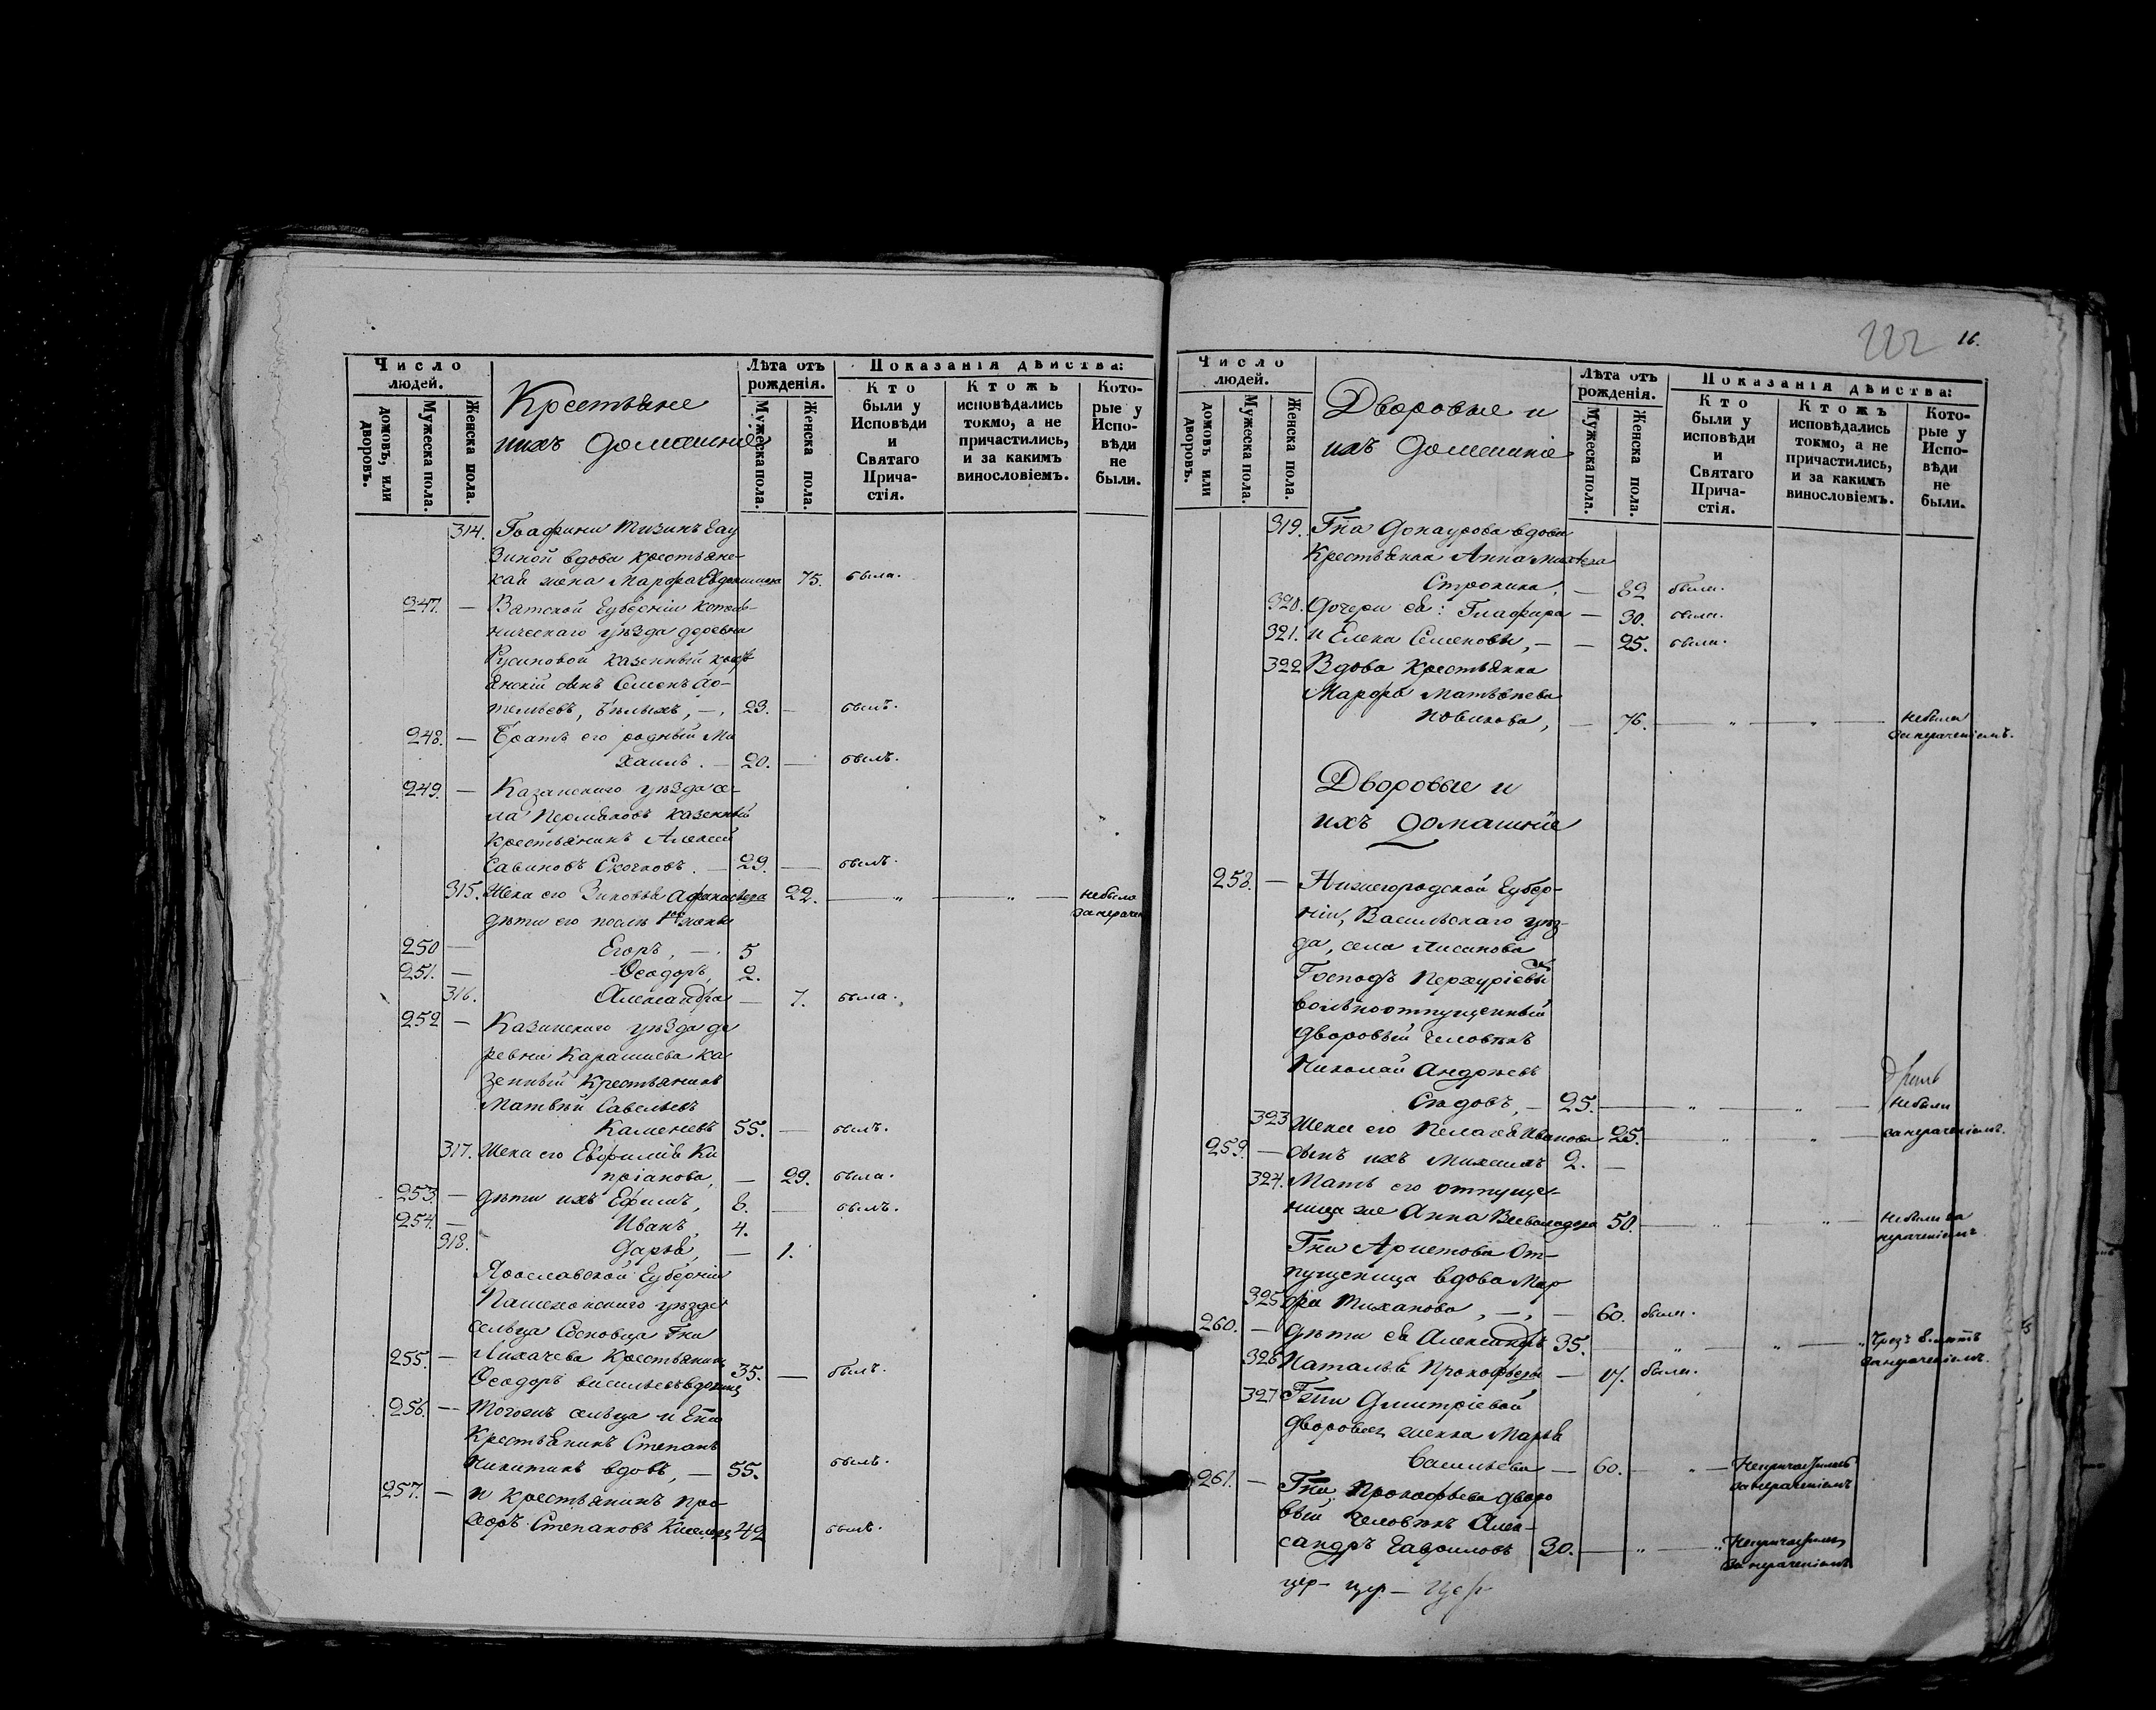 Число людей.
домовъ, или дворовъ.
Мужеска пола.
Женска пола.
Крестьяне
и ихъ домашніе
Лѣта отъ рожденія.
Мужеска пола.
Женска пола.
Показанія дѣйства:
Кто были у Исповѣди и Святаго Прича-стія.
Ктожъ исповѣдались токмо, а не причастились, и за какимъ винословіемъ.
Кото-рые у Испо-вѣди не были.
314. Графини
вдова крестьянс-
кая жена Марфа 75. была.
247. — Вятской Губерніи Котель-
ническаго уѣзда деревни
Русиновой казенный крест
янскій сынъ Семенъ Са-
вельевъ, Бѣлыхъ, — 23. — былъ.
248. — Братъ его родный Ми
хаилъ. — 20. — былъ.
249. — Казанскаго уѣзда се-
ла Пермяковъ казенный
крестьянинъ Алексей
Савиновъ — 29. — былъ.
315. Жена его Зиновья Афанасьева 22. — " — " — небыла
дѣти его после 1й жены за нерачен
250 — Егоръ, — 5
251. — Ѳеодоръ, 2.
316. Александра — 7. была.
252 — Казанскаго уѣзда де
ревни Карашиева ка
зенный Крестьянинъ
Матвѣй Савельевъ
Каменевъ 55. — былъ.
317. Жена его Евфимія Ки
пріанова, — 29. была.
253. — дѣти ихъ Ефимъ, 8. — былъ.
254. — Иванъ, 4.
318. Дарья, — 1.
Ярославской Губерніи
Пошехонскаго уѣзда
сельца Сосновца Гжи
255. — Лихачева Крестьянинъ
Ѳеодоръ Васильевъ вдовецъ 35. — былъ.
256. — Тогожъ сельца и Гжи
Крестьянинъ Степанъ
Никитинъ вдовъ, — 55. былъ.
257. — и крестьянинъ Про
хоръ Степановъ 42 былъ.
222 16.
Число людей.
домовъ или дворовъ.
Мужеска пола.
Женска пола.
Дворовые и
ихъ домашніе
Лѣта отъ рожденія.
Мужеска пола.
Женска пола.
Показанія дѣйства:
Кто были у исповѣди и Святаго Прича-стія.
Ктожъ исповѣдались токмо, а не причастились, и за какимъ винословіемъ.
Кото-рые у Испо-вѣди не были.
319. Гжа Донаурова вдова
Крестьянка Анна
Стронина, — 82 была.
320. Дочери ея: Глафира — 30. была.
321. и Елена Семеновы, — — 25. была.
322 Вдова крестьянка
Марфа Матвѣева
Новикова, — 76. — " — " — небыла
за нераченіемъ.
Дворовые и
ихъ домашніе
258. — Нижегородской Губер-
ніи, Васильскаго уѣз-
да, села Лисанова
Господъ
вольноотпущенный
дворовый человѣкъ
Николай Андреевъ
Сѣдовъ, — 25. — " — " — небыли
323 Жена его Пелагея Иванова 25. — " — " за нераченіемъ.
259. — сынъ ихъ Михаилъ 2. —
324. Мать его отпуще-
ница же Анна Всеволодова 50. — " — " небыла за
нераченіемъ
Гжи Аристова От-
пущеница вдова Мар
325 фа Тиханова, — — 60. была.
260. — Дѣти ея Александръ 35. — " — " — "
за нераченіемъ.
326 Наталья Прокофьевы — 17. была.
327 Гжи Дмитріевой
дворовая женка Марья
Васильева — 60. — " — Непричастилась
за нераченіемъ
261. — Гжи Прокофьева дворо
вый человѣкъ Алек-
сандръ Гавриловъ 30. — " — " Непричастился
за нераченіемъ